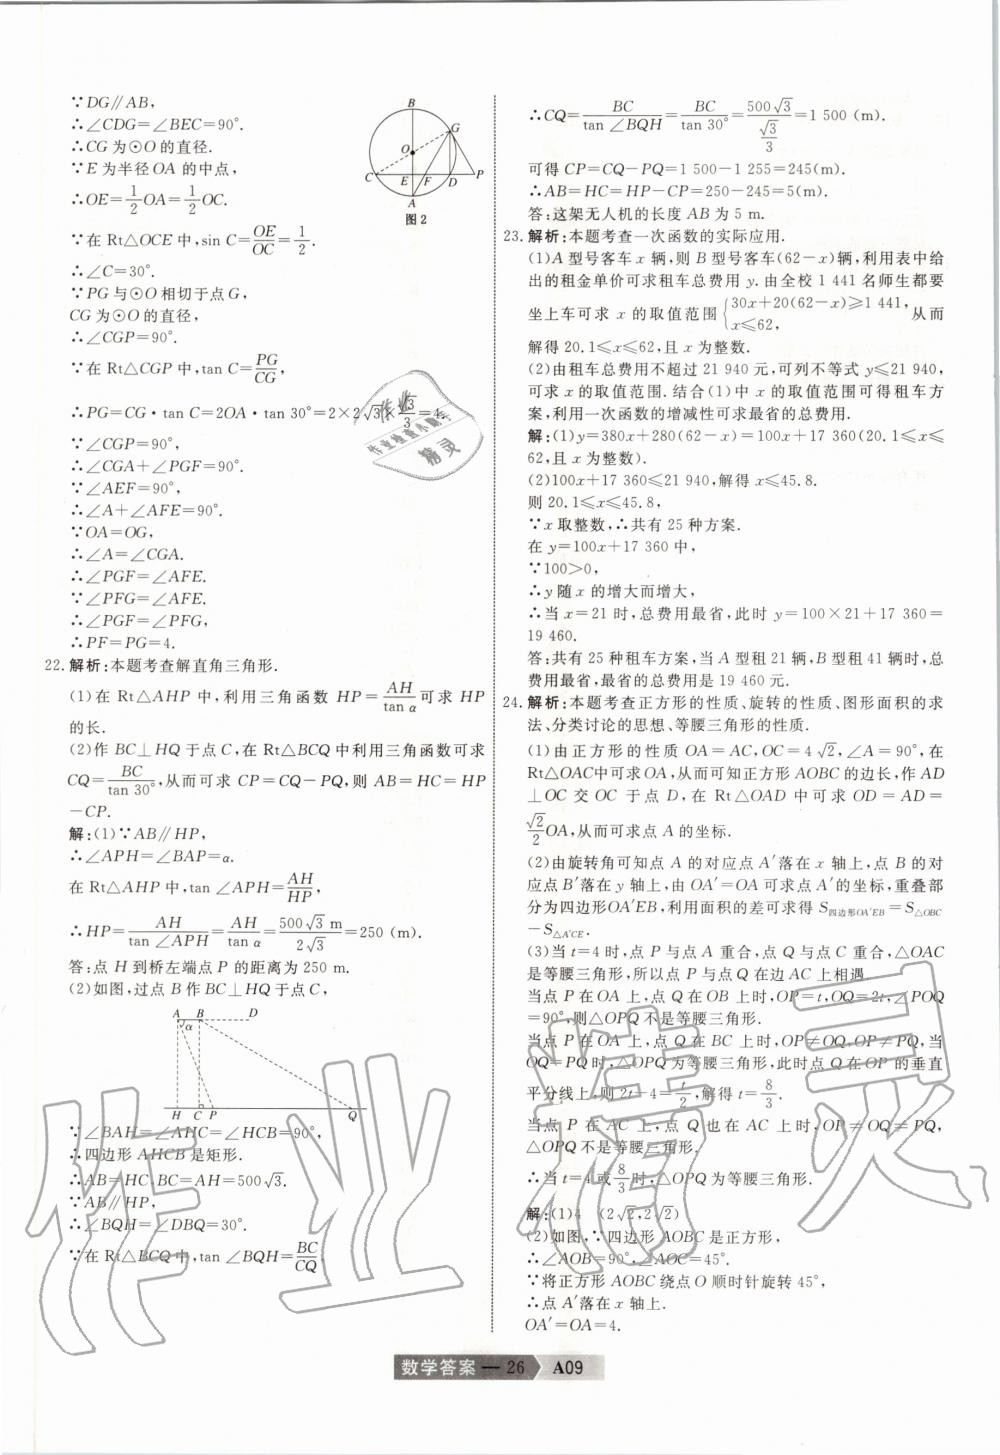 ∵DG∥AB,
∴∠CDG=∠BEC=90°.
∴CG为⊙O的直径.
∵E为半径OA的中点,
∴OE=1/2OA=1/2OC.
∵在Rt△OCE中,sin C=OE/OC=1/2.
∴∠C=30°.
∵PG与⊙O相切于点G,
CG为⊙O的直径,
∴∠CGP=90°.
∵在Rt△CGP中,tan C=PG/CG,
∴PG=CG·tan C=2OA·tan 30°=2×2√3×√3/3=4.
∵∠CGP=90°,
∴∠CGA+∠PGF=90°.
∵∠AEF=90°,
∴∠A+∠AFE=90°.
∵OA=OG,
∴∠A=∠CGA.
∴∠PGF=∠AFE.
∵∠PFG=∠AFE.
∴∠PGF=∠PFG,
∴PF=PG=4.
B
G
O
C
E
F
D
P
A
图2
22.解析:本题考查解直角三角形.
(1)在Rt△AHP中,利用三角函数HP=AH/tan α可求HP
的长.
(2)作BC⊥HQ于点C,在Rt△BCQ中利用三角函数可求
CQ=BC/tan 30°,从而可求CP=CQ-PQ,则AB=HC=HP
-CP.
解:(1)∵AB∥HP,
∴∠APH=∠BAP=α.
在Rt△AHP中,tan∠APH=AH/HP,
∴HP=AH/tan∠APH=AH/tan α=500√3 m/2√3=250 (m).
答:点H到桥左端点P的距离为250 m.
(2)如图,过点B作BC⊥HQ于点C,
A B D
α
H C P Q
∵∠BAH=∠AHC=∠HCB=90°,
∴四边形AHCB是矩形.
∴AB=HC,BC=AH=500√3.
∵AB∥HP,
∴∠BQH=∠DBQ=30°.
∵在Rt△BCQ中,tan∠BQH=BC/CQ,
∴CQ=BC/tan∠BQH=BC/tan 30°=500√3/(√3/3)=1 500 (m).
可得CP=CQ-PQ=1 500-1 255=245(m).
∴AB=HC=HP-CP=250-245=5(m).
答:这架无人机的长度AB为5 m.
23.解析:本题考查一次函数的实际应用.
(1)A型号客车x辆,则B型号客车(62-x)辆,利用表中给
出的租金单价可求租车总费用y.由全校1 441名师生都要
坐上车可求x的取值范围{30x+20(62-x)≥1 441, x≤62, 从而
解得20.1≤x≤62,且x为整数.
(2)由租车总费用不超过21 940元,可列不等式y≤21 940,
可求x的取值范围.结合(1)中x的取值范围可得租车方
案,利用一次函数的增减性可求最省的总费用.
解:(1)y=380x+280(62-x)=100x+17 360(20.1≤x≤
62,且x为整数).
(2)100x+17 360≤21 940,解得x≤45.8.
则20.1≤x≤45.8,
∵x取整数,∴共有25种方案.
在y=100x+17 360中,
∵100>0,
∴y随x的增大而增大,
∴当x=21时,总费用最省,此时y=100×21+17 360=
19 460.
答:共有25种租车方案,当A型租21辆,B型租41辆时,总
费用最省,最省的总费用是19 460元.
24.解析:本题考查正方形的性质、旋转的性质、图形面积的求
法、分类讨论的思想、等腰三角形的性质.
(1)由正方形的性质OA=AC,OC=4√2,∠A=90°,在
Rt△OAC中可求OA,从而可知正方形AOBC的边长,作AD
⊥OC交OC于点D,在Rt△OAD中可求OD=AD=
√2/2OA,从而可求点A的坐标.
(2)由旋转角可知点A的对应点A′落在x轴上,点B的对
应点B′落在y轴上,由OA′=OA可求点A′的坐标,重叠部
分为四边形OA′EB,利用面积的差可求得S四边形OA′EB=S△OBC
-S△A′CE.
(3)当t=4时,点P与点A重合,点Q与点C重合,△OAC
是等腰三角形,所以点P与点Q在边AC上相遇.
当点P在OA上,点Q在OB上时,OP=t,OQ=2t,∠POQ
=90°,则△OPQ不是等腰三角形.
当点P在OA上,点Q在BC上时,OP≠OQ,OP≠PQ,当
OQ=PQ时,△OPQ为等腰三角形,此时点Q在OP的垂直
平分线上,则2t-4=t/2,解得t=8/3.
当点P在AC上,点Q也在AC上时,OP≠OQ≠PQ,
△OPQ不是等腰三角形.
∴当t=4或8/3时,△OPQ为等腰三角形.
解:(1)4 (2√2,2√2)
(2)如图,∵四边形AOBC是正方形,
∴∠AOB=90°,∠AOC=45°.
∵将正方形AOBC绕点O顺时针旋转45°,
∴点A′落在x轴上.
OA′=OA=4.
数学答案 — 26 A09
作业精灵
作业
作业检查小助手
精灵